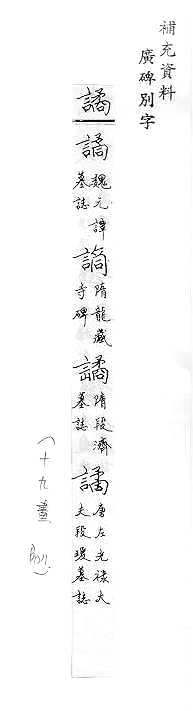 補充資料
廣碑別字
譎
譎 魏元譚墓誌
譎 隋龍藏寺碑
譎 隋段濟墓誌
譎 唐左光祿大夫段瓊墓誌
(十九畫